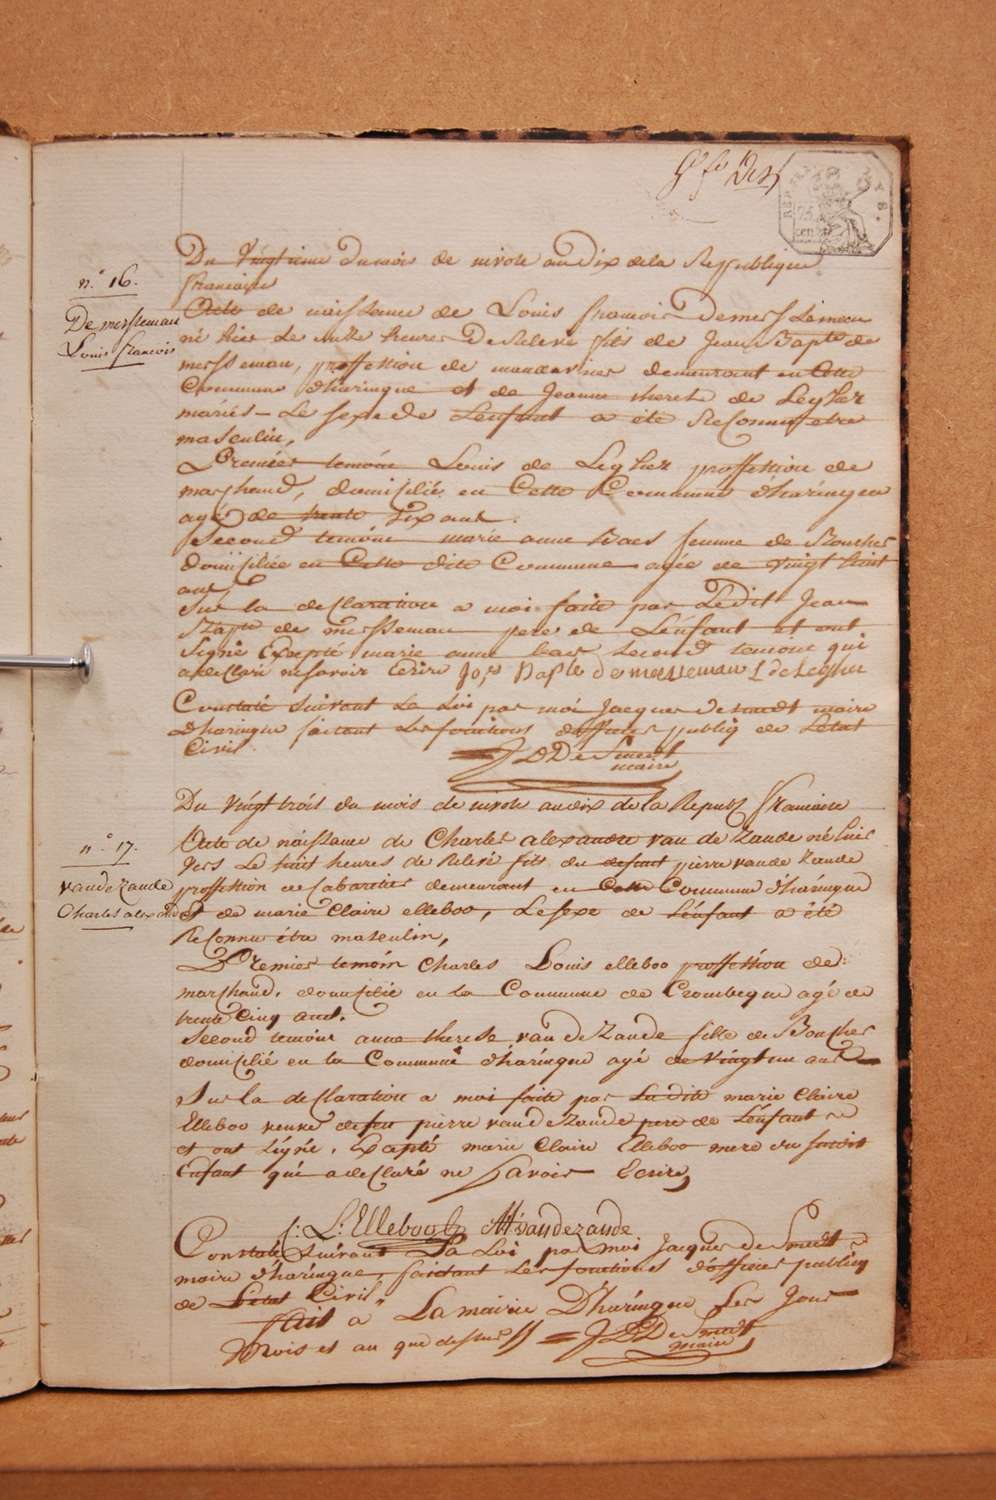 75
cen
Du vingtieme du mois de nivose an dix de la Republique
francaise
n.° 16.
De mersseman
Louis francois
Acte de naissance de Louis francois Demersseman
né hier Le onze heures De Relevé fils de Jean Bapte de
mersseman, proffession de demeurant en Cette
Commune d'haringue et de Jeanne therese de Leyher
mariés - Le sexe de L'enfant a été Reconnu etre
masculin,
Premier temoin Louis de Legher proffession de
marchand, domicilié en Cette Commune d'haringue
agé de trente six ans.
Second temoin marie anne Baes femme de
domiciliée en Cette dite Commune agée de vingt huit
ans
Sur la declaration a moi faite par Ledit Jean
Bapte de mersseman pere de L'enfant et ont
Signé Excepté marie anne baes Second temoin qui
a declaré ne savoir Ecrire Jos Bapte demersseman L de Legher
Constaté Suivant La Loi par moi Jacques Desmedt maire
d'haringue faisant Les fonctions d'officier publiq de L'etat
Civil.
J D De Smedt
maire
Du vingt trois du mois de nivose an dix de la Republ francaise
n.° 17.
vandezande
Charles alexandre
Acte de naissance de Charles alexandre van de Zande né hier
vers Le huit heures de Relevé fils du defunt pierre vande Zande
proffession de Cabaretier demeurant en Cette Commune d'haringue
et de marie Claire elleboo, Le sexe de L'enfant a été
Reconnu être masculin,
Premier temoin Charles Louis elleboo proffession de
marchand, domicilié en la Commune de Crombeque agé de
trente Cinq ans.
Second temoin anne therese van De Zande fille de
domicilié en la Commune d'haringue agé de vingt un ans
Sur la declaration a moi faite par Ladite marie Claire
Elleboo veuve de feu pierre vandeZande pere de L'enfant
et ont Signé, Excepté marie Claire Elleboo mere du susdit
Enfant qui a declaré ne Savoir Ecrire,
C: L: Elleboo MT vandezande
Constaté Suivant La Loi par moi Jacques de Smedt
maire d'haringue, faisant Les fonctions d'officier publiq
de L'etat Civil,
fait a La mairie D'haringue Les Jour
mois et an que dessus J D De Smedt
maire